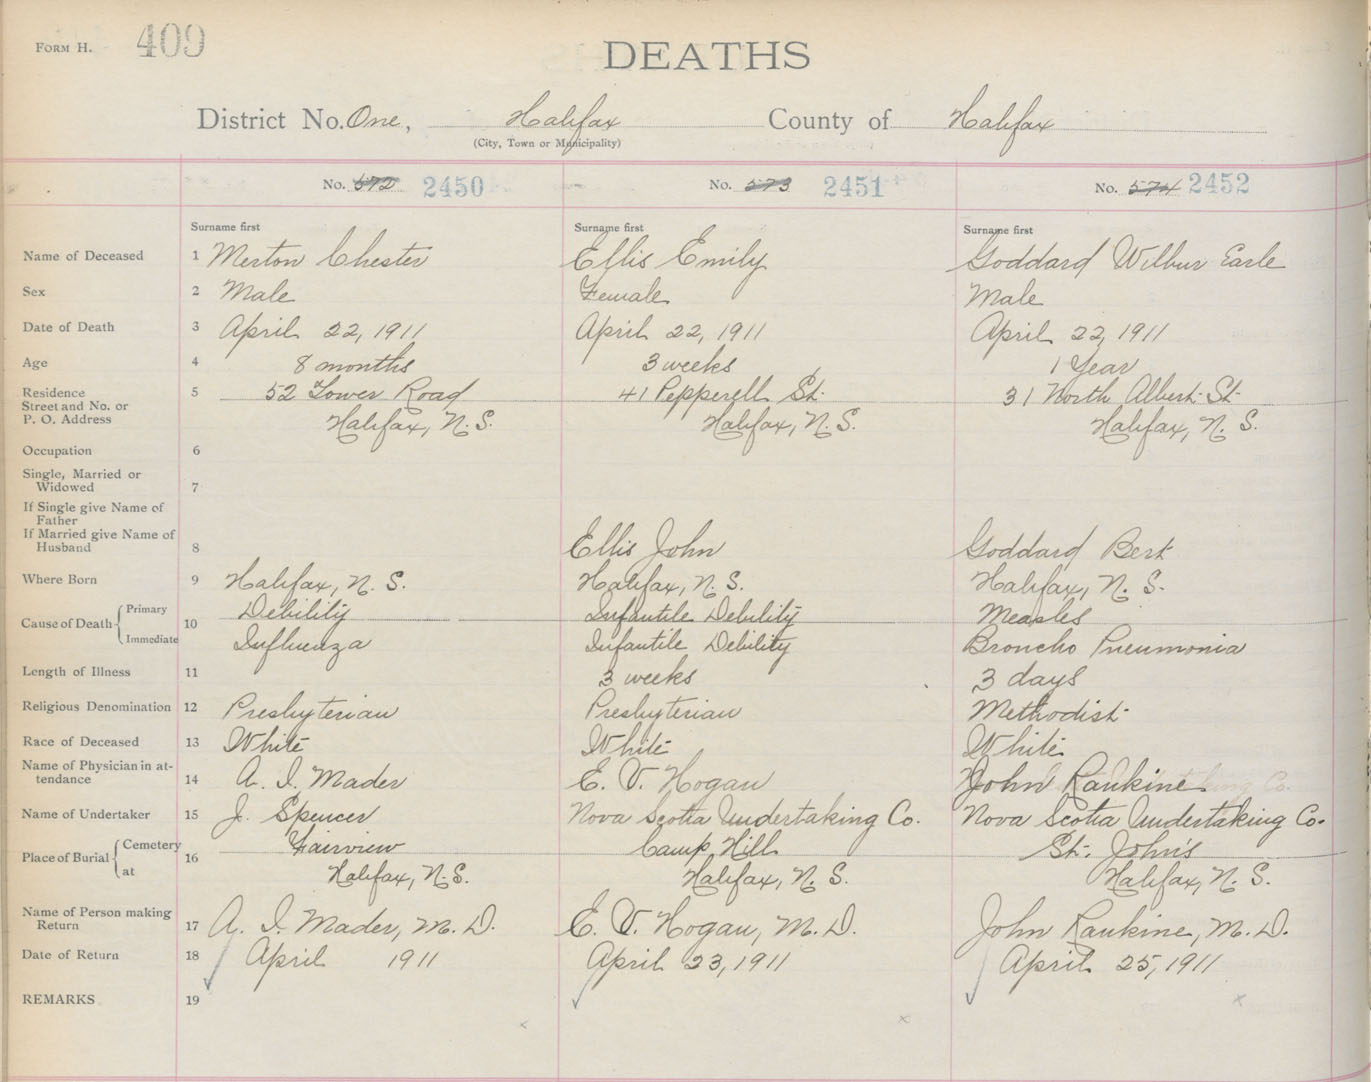 FORM H. 409
DEATHS
District No. One, Halifax County of Halifax
(City, Town or Municipality)
No. 572 2450 No. 573 2451 No. 574 2452
Surname first Surname first Surname first
Name of Deceased 1 Merton Chester Ellis Emily Goddard Wilbur Earle
Sex 2 Male Female Male
Date of Death 3 April 22, 1911 April 22, 1911 April 22, 1911
Age 4 8 months 3 weeks 1 Year
Residence 5 52 Tower Road 41 Pepperell St. 31 North Albert St.
Street and No. or
P. O. Address Halifax, N. S. Halifax, N. S. Halifax, N. S.
Occupation 6
Single, Married or
Widowed 7
If Single give Name of
Father
If Married give Name of
Husband 8 Ellis John Goddard Bert
Where Born 9 Halifax, N. S. Halifax, N. S. Halifax, N. S.
Primary Debility Infantile Debility Measles
Cause of Death 10
Immediate Influenza Infantile Debility Broncho Pneumonia
Length of Illness 11 3 weeks 3 days
Religious Denomination 12 Presbyterian Presbyterian Methodist
Race of Deceased 13 White White White
Name of Physician in at-
tendance 14 A. I. Mader E. V. Hogan John Rankine
Name of Undertaker 15 J. Spencer Nova Scotia Undertaking Co. Nova Scotia Undertaking Co.
Cemetery Fairview Camp Hill St. John's
Place of Burial 16
at Halifax, N. S. Halifax, N. S. Halifax, N. S.
Name of Person making
Return 17 A. I. Mader, M. D. E. V. Hogan, M. D. John Rankine, M. D.
Date of Return 18 April 1911 April 23, 1911 April 25, 1911
REMARKS 19